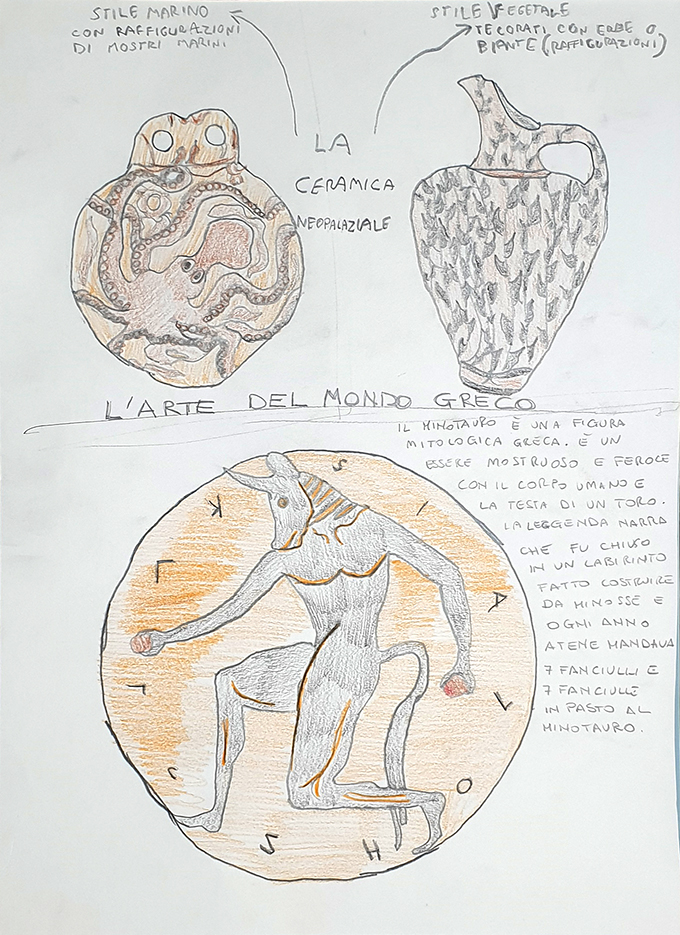 STILE MARINO
CON RAFFIGURAZIONI
DI MOSTRI MARINI
STILE VEGETALE
TECORATI CON ERBE O
BIANTE (RAFFIGURAZIONI)
LA
CERAMICA
NEOPALAZIALE
L'ARTE DEL MONDO GRECO
IL MINOTAURO È UNA FIGURA
MITOLOGICA GRECA. È UN
ESSERE MOSTRUOSO E FEROCE
CON IL CORPO UMANO E
LA TESTA DI UN TORO.
LA LEGGENDA NARRA
CHE FU CHIUSO
IN UN LABIRINTO
FATTO COSTRUIRE
DA MINOSSE E
OGNI ANNO
ATENE MANDAVA
7 FANCIULLI E
7 FANCIULLE
IN PASTO AL
MINOTAURO.
K
S
I
A
O
H
S